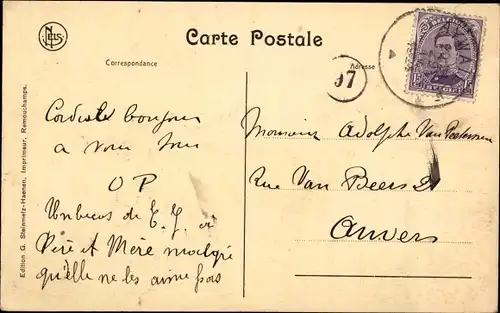 NELS
Carte Postale
Correspondance
Adresse
97
BELGIQUE
15 15
BELGIË
Edition G. Steinmetz-Haenen, Imprimeur, Remouchamps.
Cordiale bonjour
a vous tous
O P
Un bécus de E. J. à
Père et Mère malgré
qu'elle ne les aime pas
Monsieur Adolphe Van
Rue Van Beers 21
Anvers